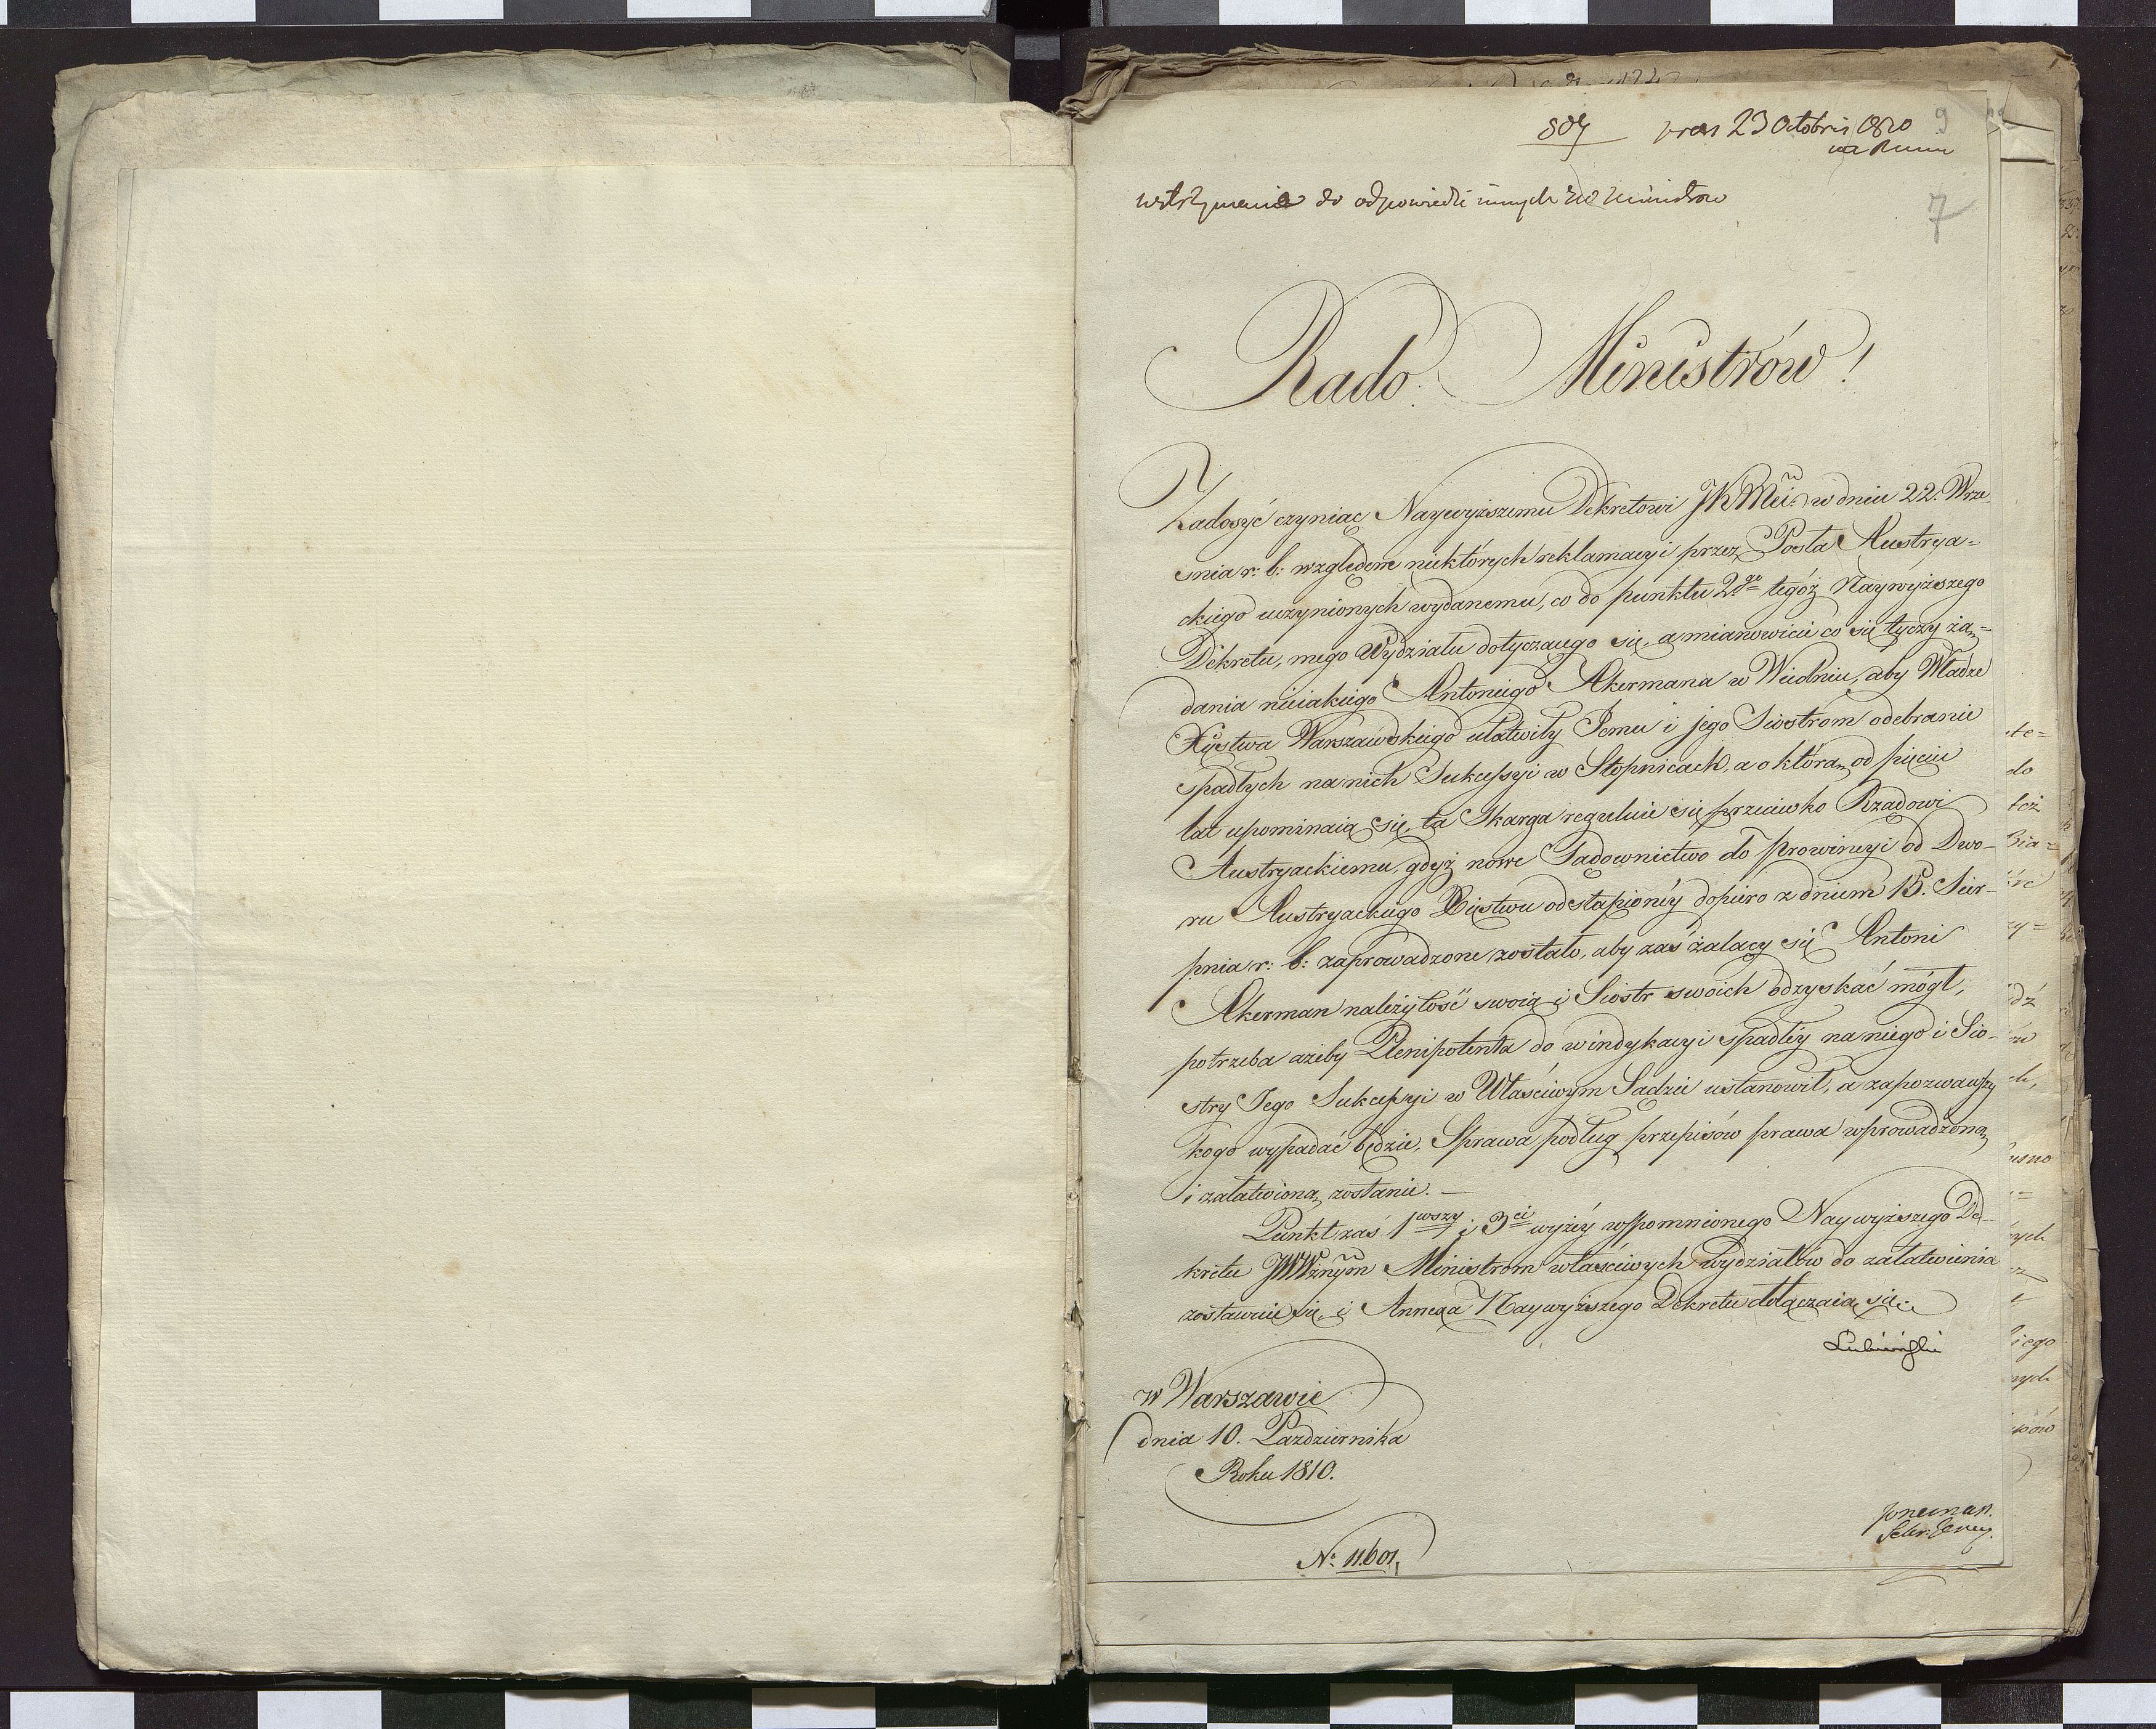 807 pres 23 Octobris 1810
9
wstrzymanie do odpowiedzi innych Ministrow
7
Rado Ministrów!
Zadosyć czyniąc Naywyższemu Dekretowi JKMci w dniu 22. Wrze
śnia r: b: względem niektórych reklamacyi przez Posła Austrya=
ckiego uczynionych wydanemu, co do punktu 2go tegóż Naywyższego
Dekretu, mego Wydziału dotyczącego się, a mianowicie co się tyczy żą=
dania nieiakiego Antoniego Akermana w Wiedniu, aby Władze
Xięstwa Warszawskiego ułatwiły Jemu i jego Siostróm odebranie
spadłych na nich Sukcessyi w Stopnicach, a o którą od pięciu
lat upominaią się, ta Skarga reguluie się przeciwko Rządowi
Austryackiemu, gdyż nowe Sądownictwo do prowincyi od Dwo-
ru Austryackiego Xięstwu odstąpionéy dopiero z dniem 15. Sier-
pnia r: b: zaprowadzone zostało, aby zaś żalący się Antoni
Akerman należytość swoią i Siostr swoich odzyskać mógł,
potrzeba ażeby Plenipotenta do windykacyi spadłéy na niego i Sio-
stry Jego Sukcessyi w Właściwym Sądzie ustanowił, a zapozwawszy
kogo wypadać będzie, Sprawa podług przepisów prawa wprowadzoną
i załatwioną zostanie. —
Punkt zaś 1wszy i 3ci wyżéy wspomnionego Naywyższego De
kretu JWWżnym Ministrom właściwych wydziałów do załatwienia
zostawuie się, i Annexa Naywyższego Dekretu dołączaią się.
Lubieński
w Warszawie
dnia 10. Pazdziernika
Roku 1810.
Sekr: Jen:
No 11.601